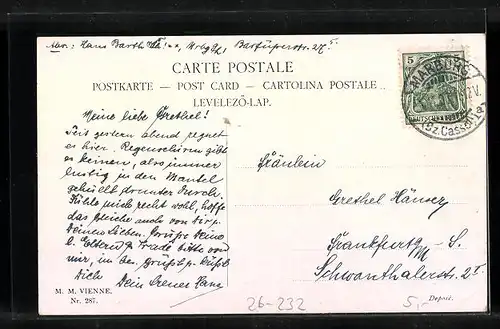 Abs: Hans Barth Mbg a/L, Barfüßerstr. 27 I
CARTE POSTALE
POSTKARTE — POST CARD — CARTOLINA POSTALE
LEVELEZŐ-LAP.
5
DEUTSCHES REICH
MARBURG
(Bz. Cassel) 1a
Meine liebe Grethel!
Seit gestern abend regnet
es hier. Regenschirm gibt
es keinen, also immer
lustig in den Mantel
gehüllt drunter durch.
Fühle mich recht wohl, hoffe
das gleiche auch von Dir u.
Deinen Lieben. Grüße Deine
l. Eltern & bitte von
mir, in
Dich
Dein
Hans
Fräulein
Grethel Häuser
Frankfurt a/M – S.
Schwanthalerstr. 2 I
M. M. VIENNE.
Nr. 287.
26-232
5,-
Deposé.